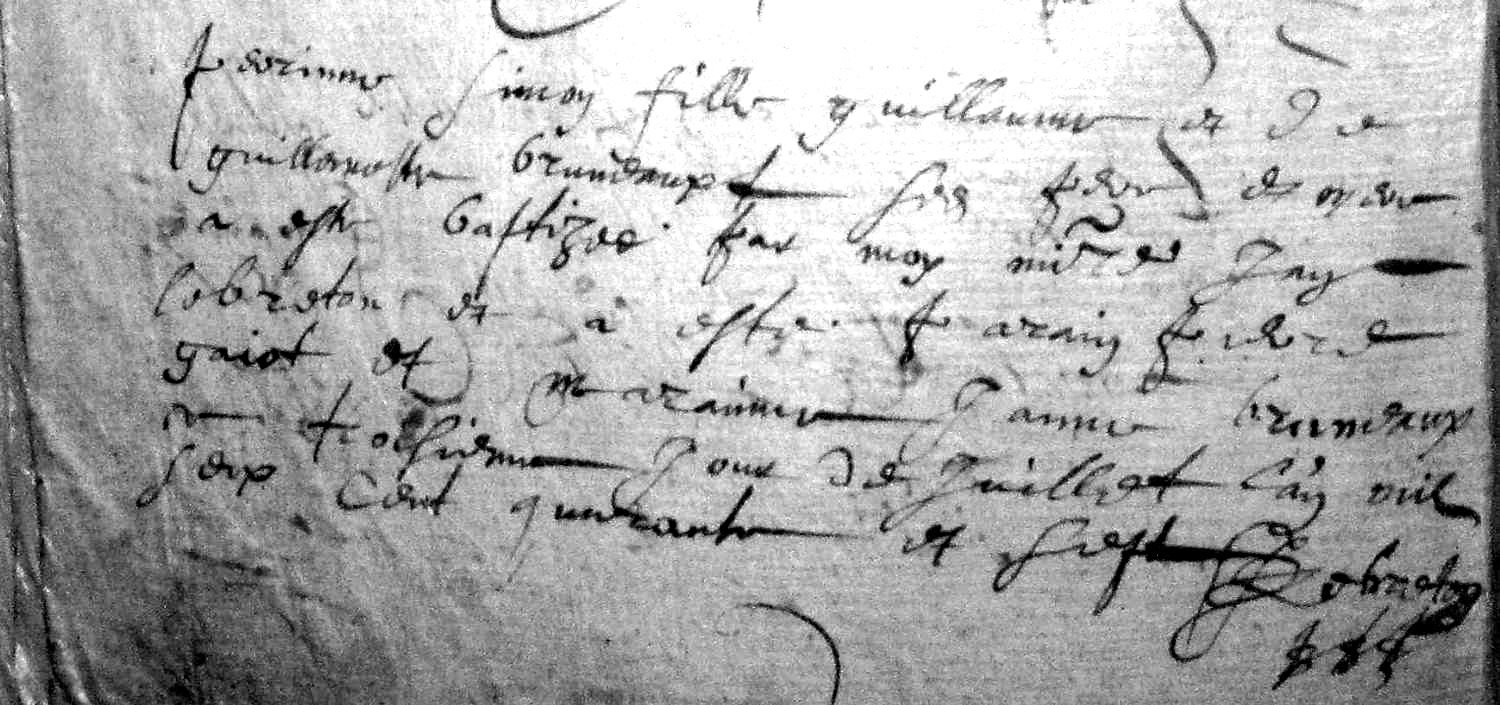 perinne simon fille guillaume et de
guillemette brundeaux ses pere et mere
a este baptizee par moy Jan
lebreton et a este parain pierre
gaiot et maraine Janne brundeaux
troisieme Jour de Juillet l'an mil
seix cent quarante et sept Lebreton
pbr